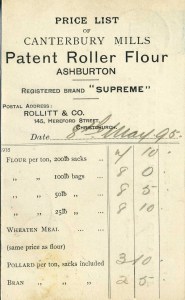 PRICE LIST
OF
CANTERBURY MILLS
Patent Roller Flour
ASHBURTON
REGISTERED BRAND "SUPREME"
POSTAL ADDRESS:
ROLLITT & CO.
145, HEREFORD STREET,
CHRISTCHURCH
Date 8 May 95.
FLOUR per ton, 200lb sacks 7 10
" " 100lb bags 8 0
" " 50lb " 8 5
" " 25lb " 8 10
WHEATEN MEAL
(same price as flour)
POLLARD per ton, sacks included 3 10
BRAN " " 2 5